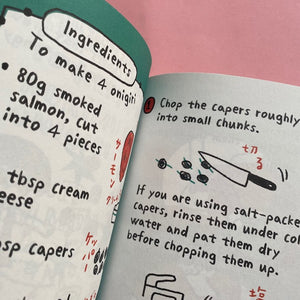 Ingredients
To make 4 onigiri
• 80g smoked
salmon, cut
into 4 pieces
サーモン
tbsp cream
cheese
tbsp capers
ケッパー
1 Chop the capers roughly
into small chunks.
切る
If you are using salt-packe
capers, rinse them under col
water and pat them dry
before chopping them up.
塩